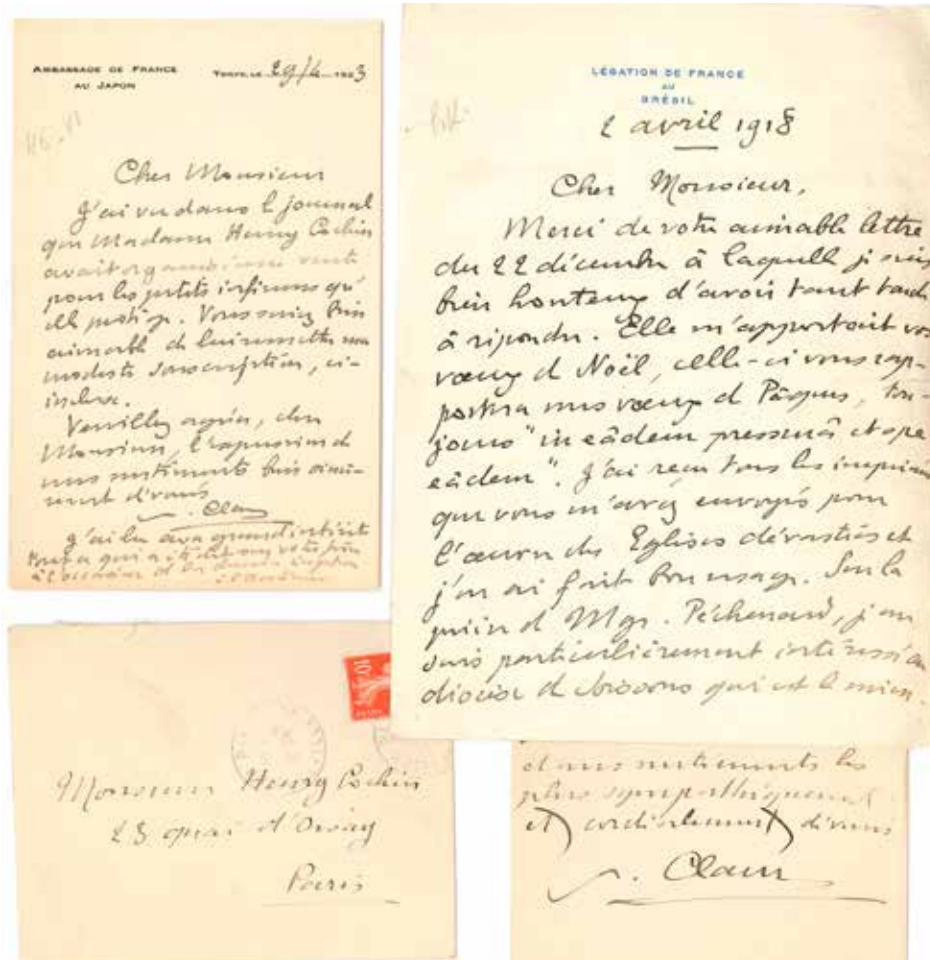 AMBASSADE DE FRANCE
AU JAPON
TOKYO, LE 29/4 1923
Cher Monsieur
J'ai vu dans le journal
que Madame Henry Cochin
avait organisé une vente
pour les petits infirmes qu'
elle protège. Vous seriez bien
aimable de lui remettre ma
modeste souscription, ci-
incluse.
Veuillez agréer, cher
Monsieur, l'expression de
mes sentiments bien sincè-
rement dévoués
Claudel
J'ai lu avec grand intérêt
tout ce qui a été dit sur votre
à l'occasion de
LÉGATION DE FRANCE
AU
BRÉSIL
2 avril 1918
Cher Monsieur,
Merci de votre aimable lettre
du 22 décembre à laquelle je suis
bien honteux d'avoir tant tardé
à répondre. Elle m'apportait vos
vœux de Noël, celle-ci vous rap-
portera mes vœux de Pâques, tou-
jours "in eâdem pressurâ et spe
eâdem". J'ai reçu tous les imprimés
que vous m'avez envoyés pour
l'œuvre des Eglises dévastées et
j'en ai fait bon usage. Sur la
prière de Mgr. Péchenard, je me
suis particulièrement intéressé au
diocèse de Soissons qui est le mien.
et mes sentiments les
plus sympathiquement
et cordialement dévoués
Claudel
10
Monsieur Henry Cochin
23 quai d'Orsay
Paris